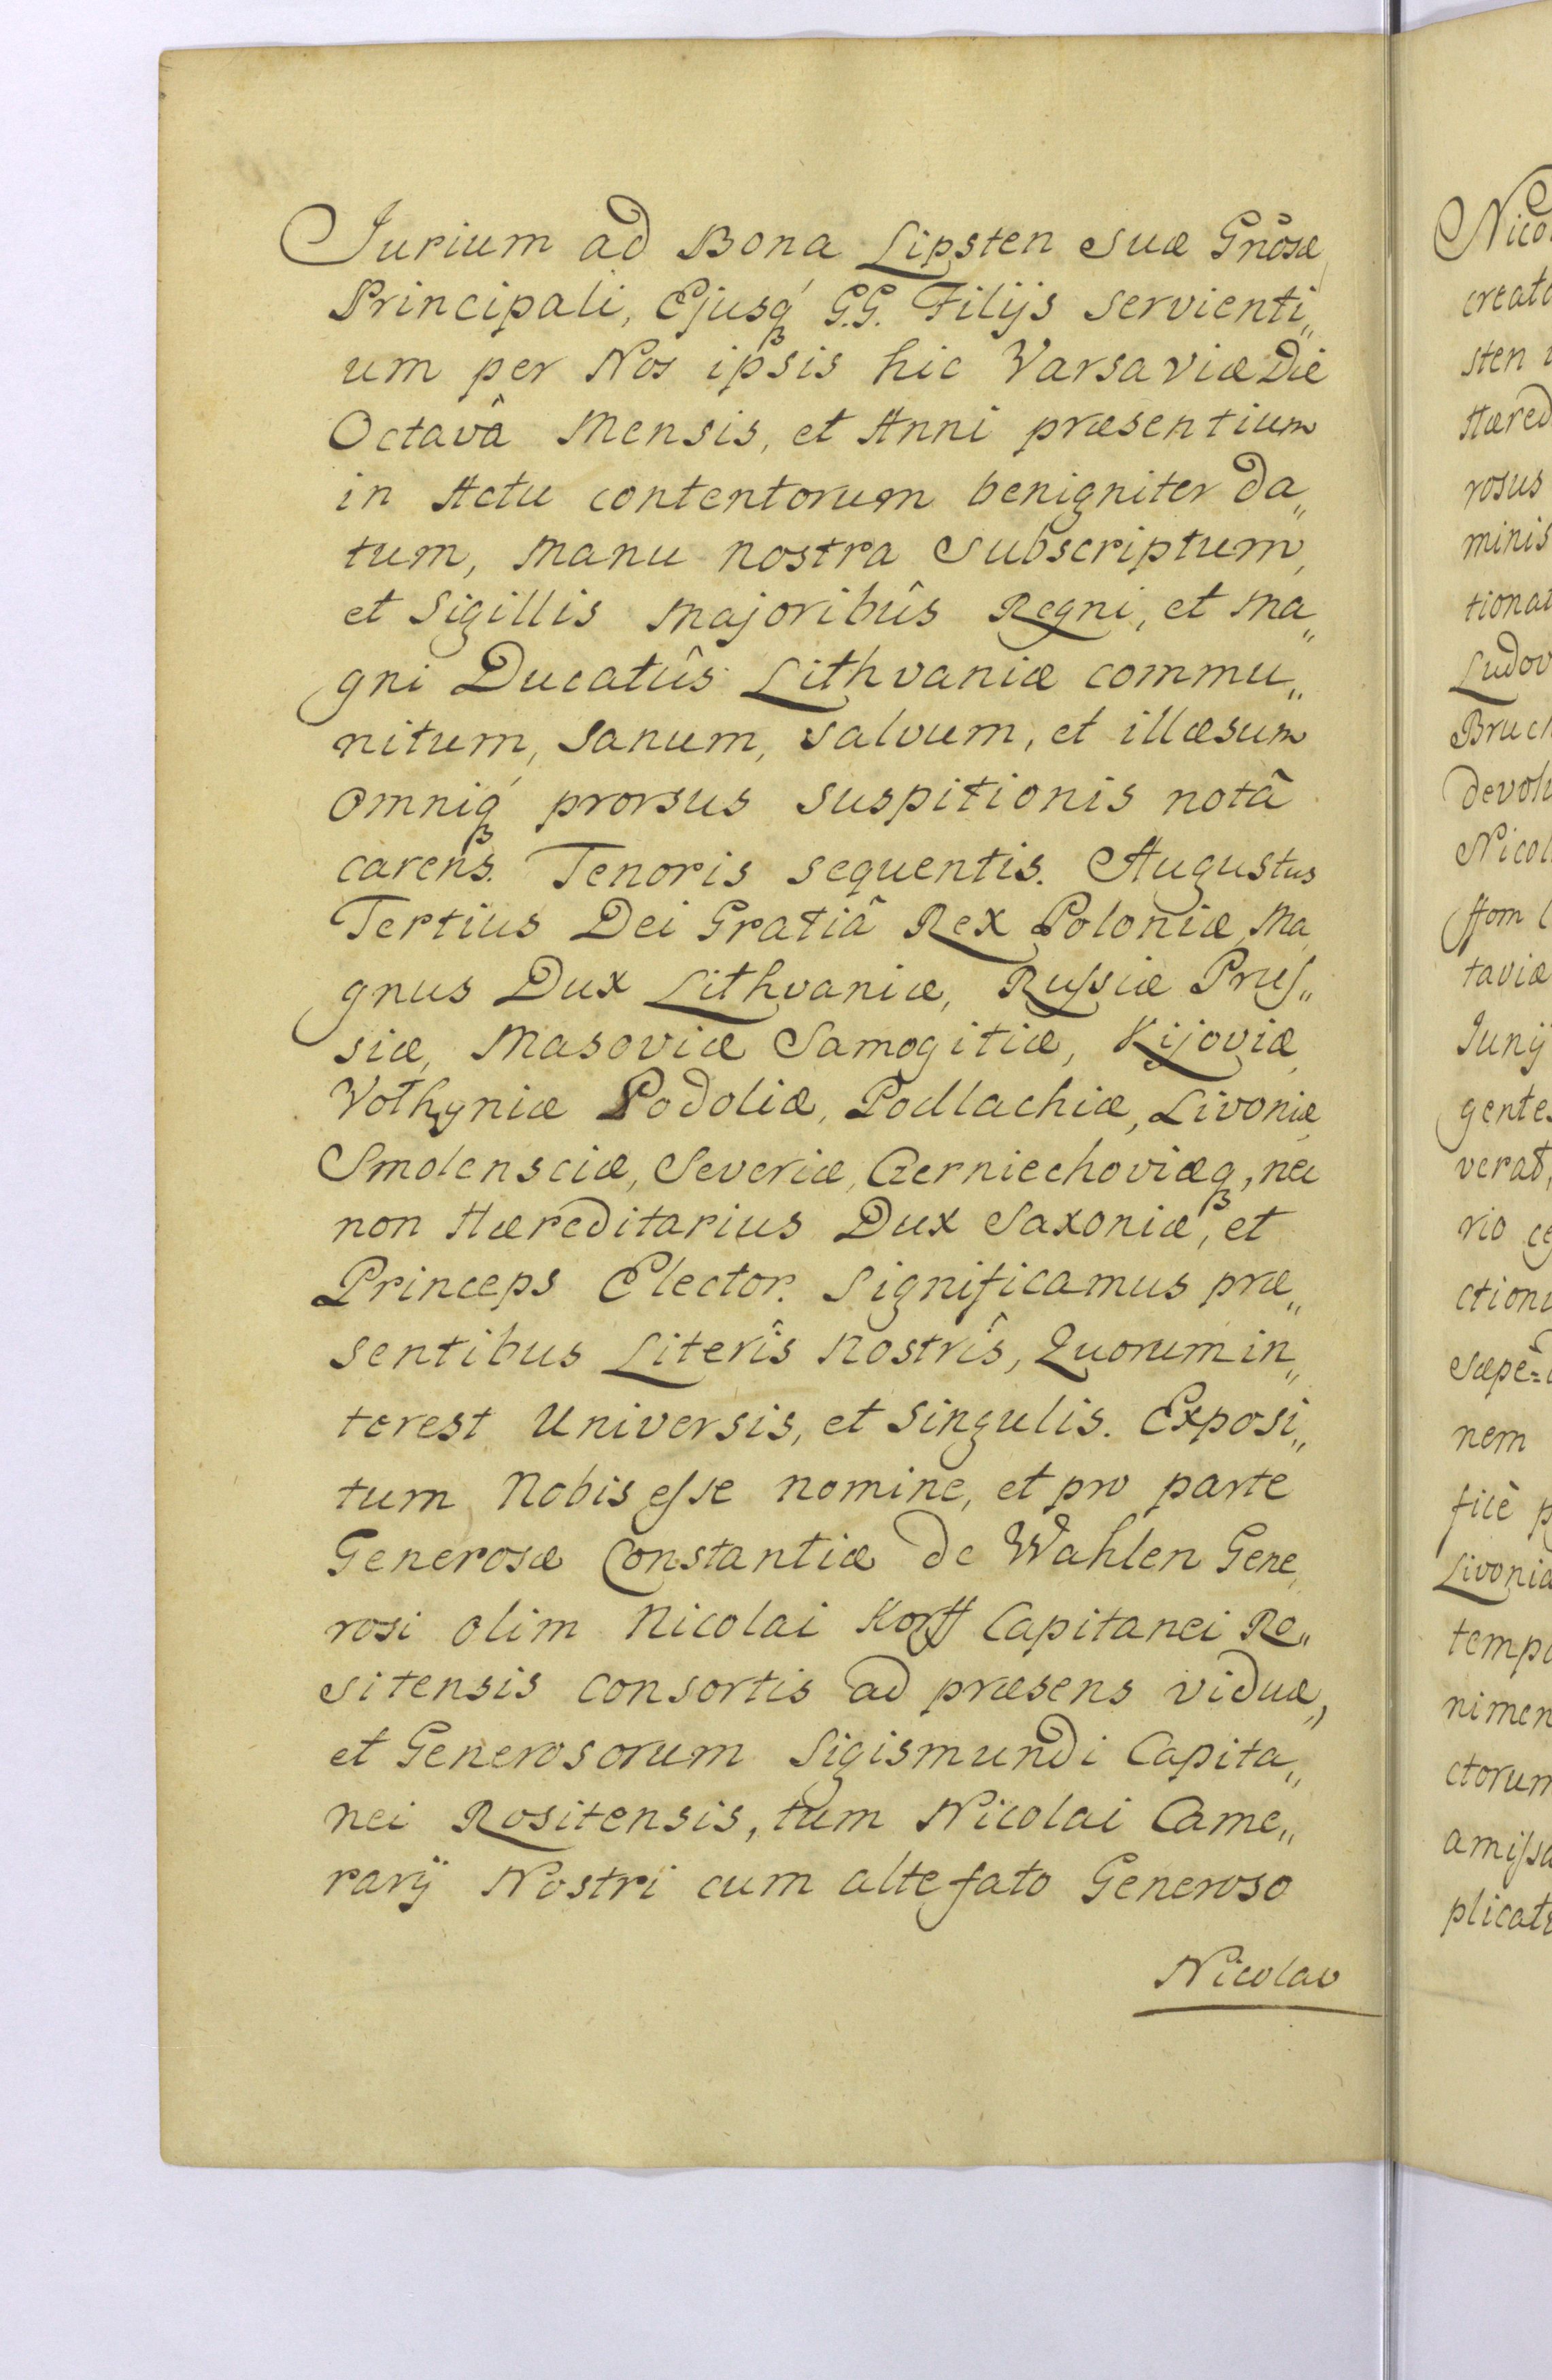 Jurium ad Bona Lipsten Suæ Gnôsæ
Principali, Ejusq́ꝫ G.G. Filijs servienti„
um per Nos ipsis hic Varsaviæ Die
Octavâ Mensis, et Anni præsentium
in Actu contentorum benigniter da„
tum, Manu nostra Subscriptum,
et Sigillis Majoribûs Regni, et Ma„
gni Ducatûs Lithvaniæ commu„
nitum, sanum, salvum, et illæsum
omniq́ꝫ prorsus suspitionis notâ
carens. Tenoris sequentis. Augustus
Tertius Dei Gratiâ Rex Poloniæ, Ma„
gnus Dux Lithvaniæ, Ruſsiæ Pruſ„
siæ, Masoviæ Samogitiæ, Kijoviæ,
Volhyniæ Podoliæ, Podlachiæ, Livoniæ,
Smolensciæ, Severiæ, Czerniechoviæqꝫ, nec
non Hæreditarius Dux Saxoniæ, et
Princeps Elector. Significamus præ„
sentibus Literîs Nostrîs, Quorum in„
terest Universis, et Singulis. Exposi„
tum Nobis eſse nomine, et pro parte
Generosæ Constantiæ de Wahlen Gene„
rosi olim Nicolai Korff Capitanei Ro„
sitensis consortis ad præsens viduæ,
et Generosorum Sigismundi Capita„
nei Rositensis, tum Nicolai Came„
rarij Nostri cum altefato Generoso
Nicolao
Nico
creato
sten
Hæred
rosus
minis
tionat
Ludov
Bruch
devol
Nicol
taviæ
Junij
gentes
verat,
rio
ction
Sæpe=
nem
ficè
Livoniæ
temp
nimen
ctorum
amiſsa
plicat